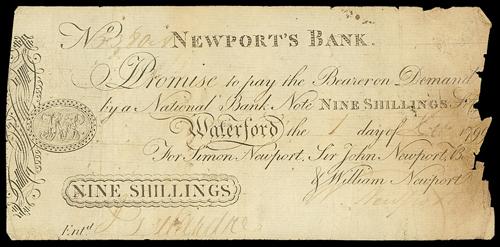 No.
NEWPORT'S BANK.
I Promise to pay the Bearer on Demand
by a National Bank Note NINE SHILLINGS
Waterford the 1 day of 179
For Simon Newport, Sir John Newport, B
& William Newport
NINE SHILLINGS
Entd